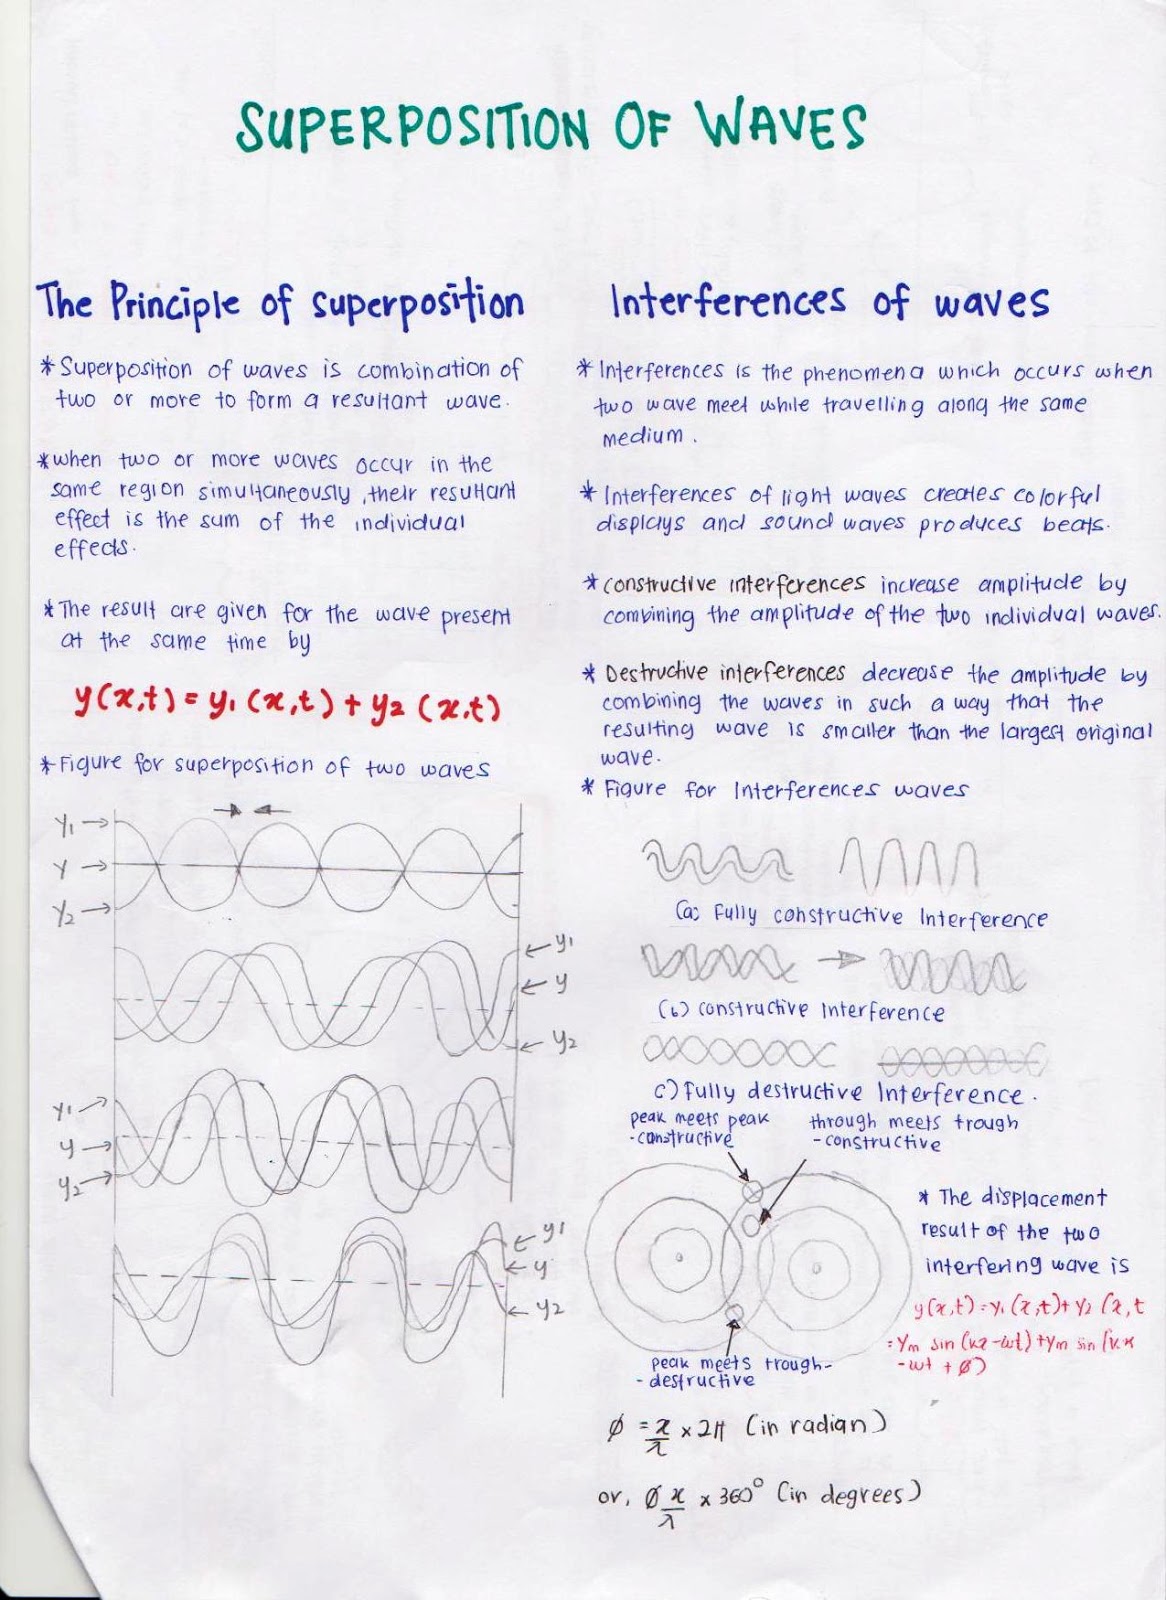 SUPERPOSITION OF WAVES
The Principle of superposition
* Superposition of waves is combination of
two or more to form a resultant wave.
* when two or more waves occur in the
same region simultaneously, their resultant
effect is the sum of the individual
effects.
* The result are given for the wave present
at the same time by
y(x,t) = y₁ (x,t) + y₂ (x,t)
* Figure for superposition of two waves
y₁ →
y →
y₂ →
← y₁
← y
← y₂
y₁ →
y →
y₂ →
← y₁
← y
← y₂
Interferences of waves
* Interferences is the phenomena which occurs when
two wave meet while travelling along the same
medium.
* Interferences of light waves creates colorful
displays and sound waves produces beats.
* constructive interferences increase amplitude by
combining the amplitude of the two individual waves.
* Destructive interferences decrease the amplitude by
combining the waves in such a way that the
resulting wave is smaller than the largest original
wave.
* Figure for Interferences waves
(a) Fully constructive Interference
(b) constructive Interference
c) Fully destructive Interference.
peak meets peak
- constructive
through meets trough
- constructive
peak meets trough-
- destructive
* The displacement
result of the two
interfering wave is
y(x,t) = y₁ (x,t) + y₂ (x,t
= ym sin (kx - wt) + ym sin (kx
- wt + ø)
ø = x/λ × 2π (in radian)
or, ø x/λ × 360° (in degrees)